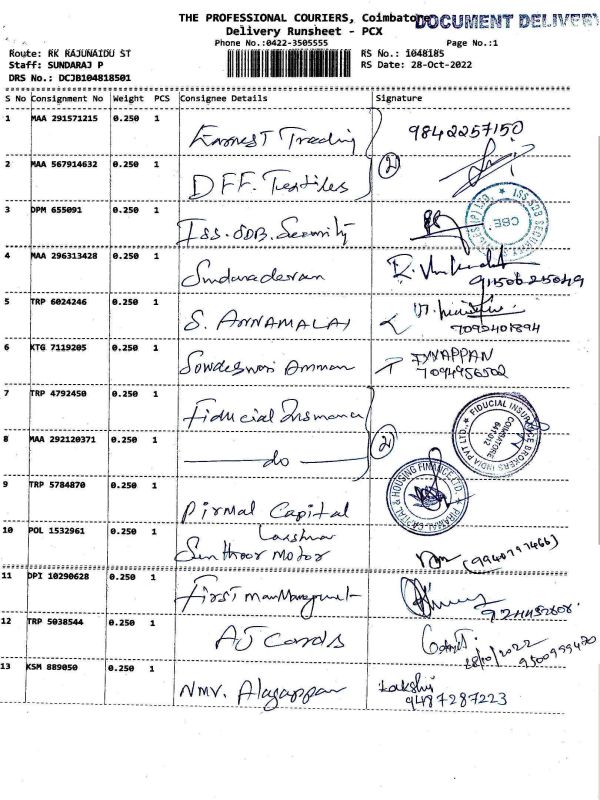 THE PROFESSIONAL COURIERS, Coimbatore
DOCUMENT DELIVERY
Delivery Runsheet - PCX
Phone No.:0422-3505555 Page No.:1
Route: RK RAJUNAIDU ST RS No.: 1048185
Staff: SUNDARAJ P RS Date: 28-Oct-2022
DRS No.: DCJB104818501
S No Consignment No Weight PCS Consignee Details Signature
1 MAA 291571215 0.250 1 Earnest Trading 9842257150
2 MAA 567914632 0.250 1 DFF. Textiles
3 DPM 655091 0.250 1 ISS. SDB. Security
ISS SDB SECURITY CBE.
4 MAA 296313428 0.250 1 Sundaradevan
5 TRP 6024246 0.250 1 S. ANNAMALAI
7092401894
6 KTG 7119205 0.250 1 Sowdeswari Amman IYYAPPAN
7094956502
7 TRP 4792450 0.250 1 Fiducial Insurance
FIDUCIAL INSURANCE BROKERS INDIA PVT LTD. COIMBATORE 641 012
8 MAA 292120371 0.250 1 do
9 TRP 5784870 0.250 1 Pirmal Capital
PIRAMAL CAPITAL & HOUSING FINANCE LTD.
10 POL 1532961 0.250 1 Senthoor Motor (9940797466)
11 DPI 10290628 0.250 1 First man Management
12 TRP 5038544 0.250 1 AJ Cards
28/10/2022
13 KSM 889050 0.250 1 NMV. Alagappan Lakshmi
9487287223